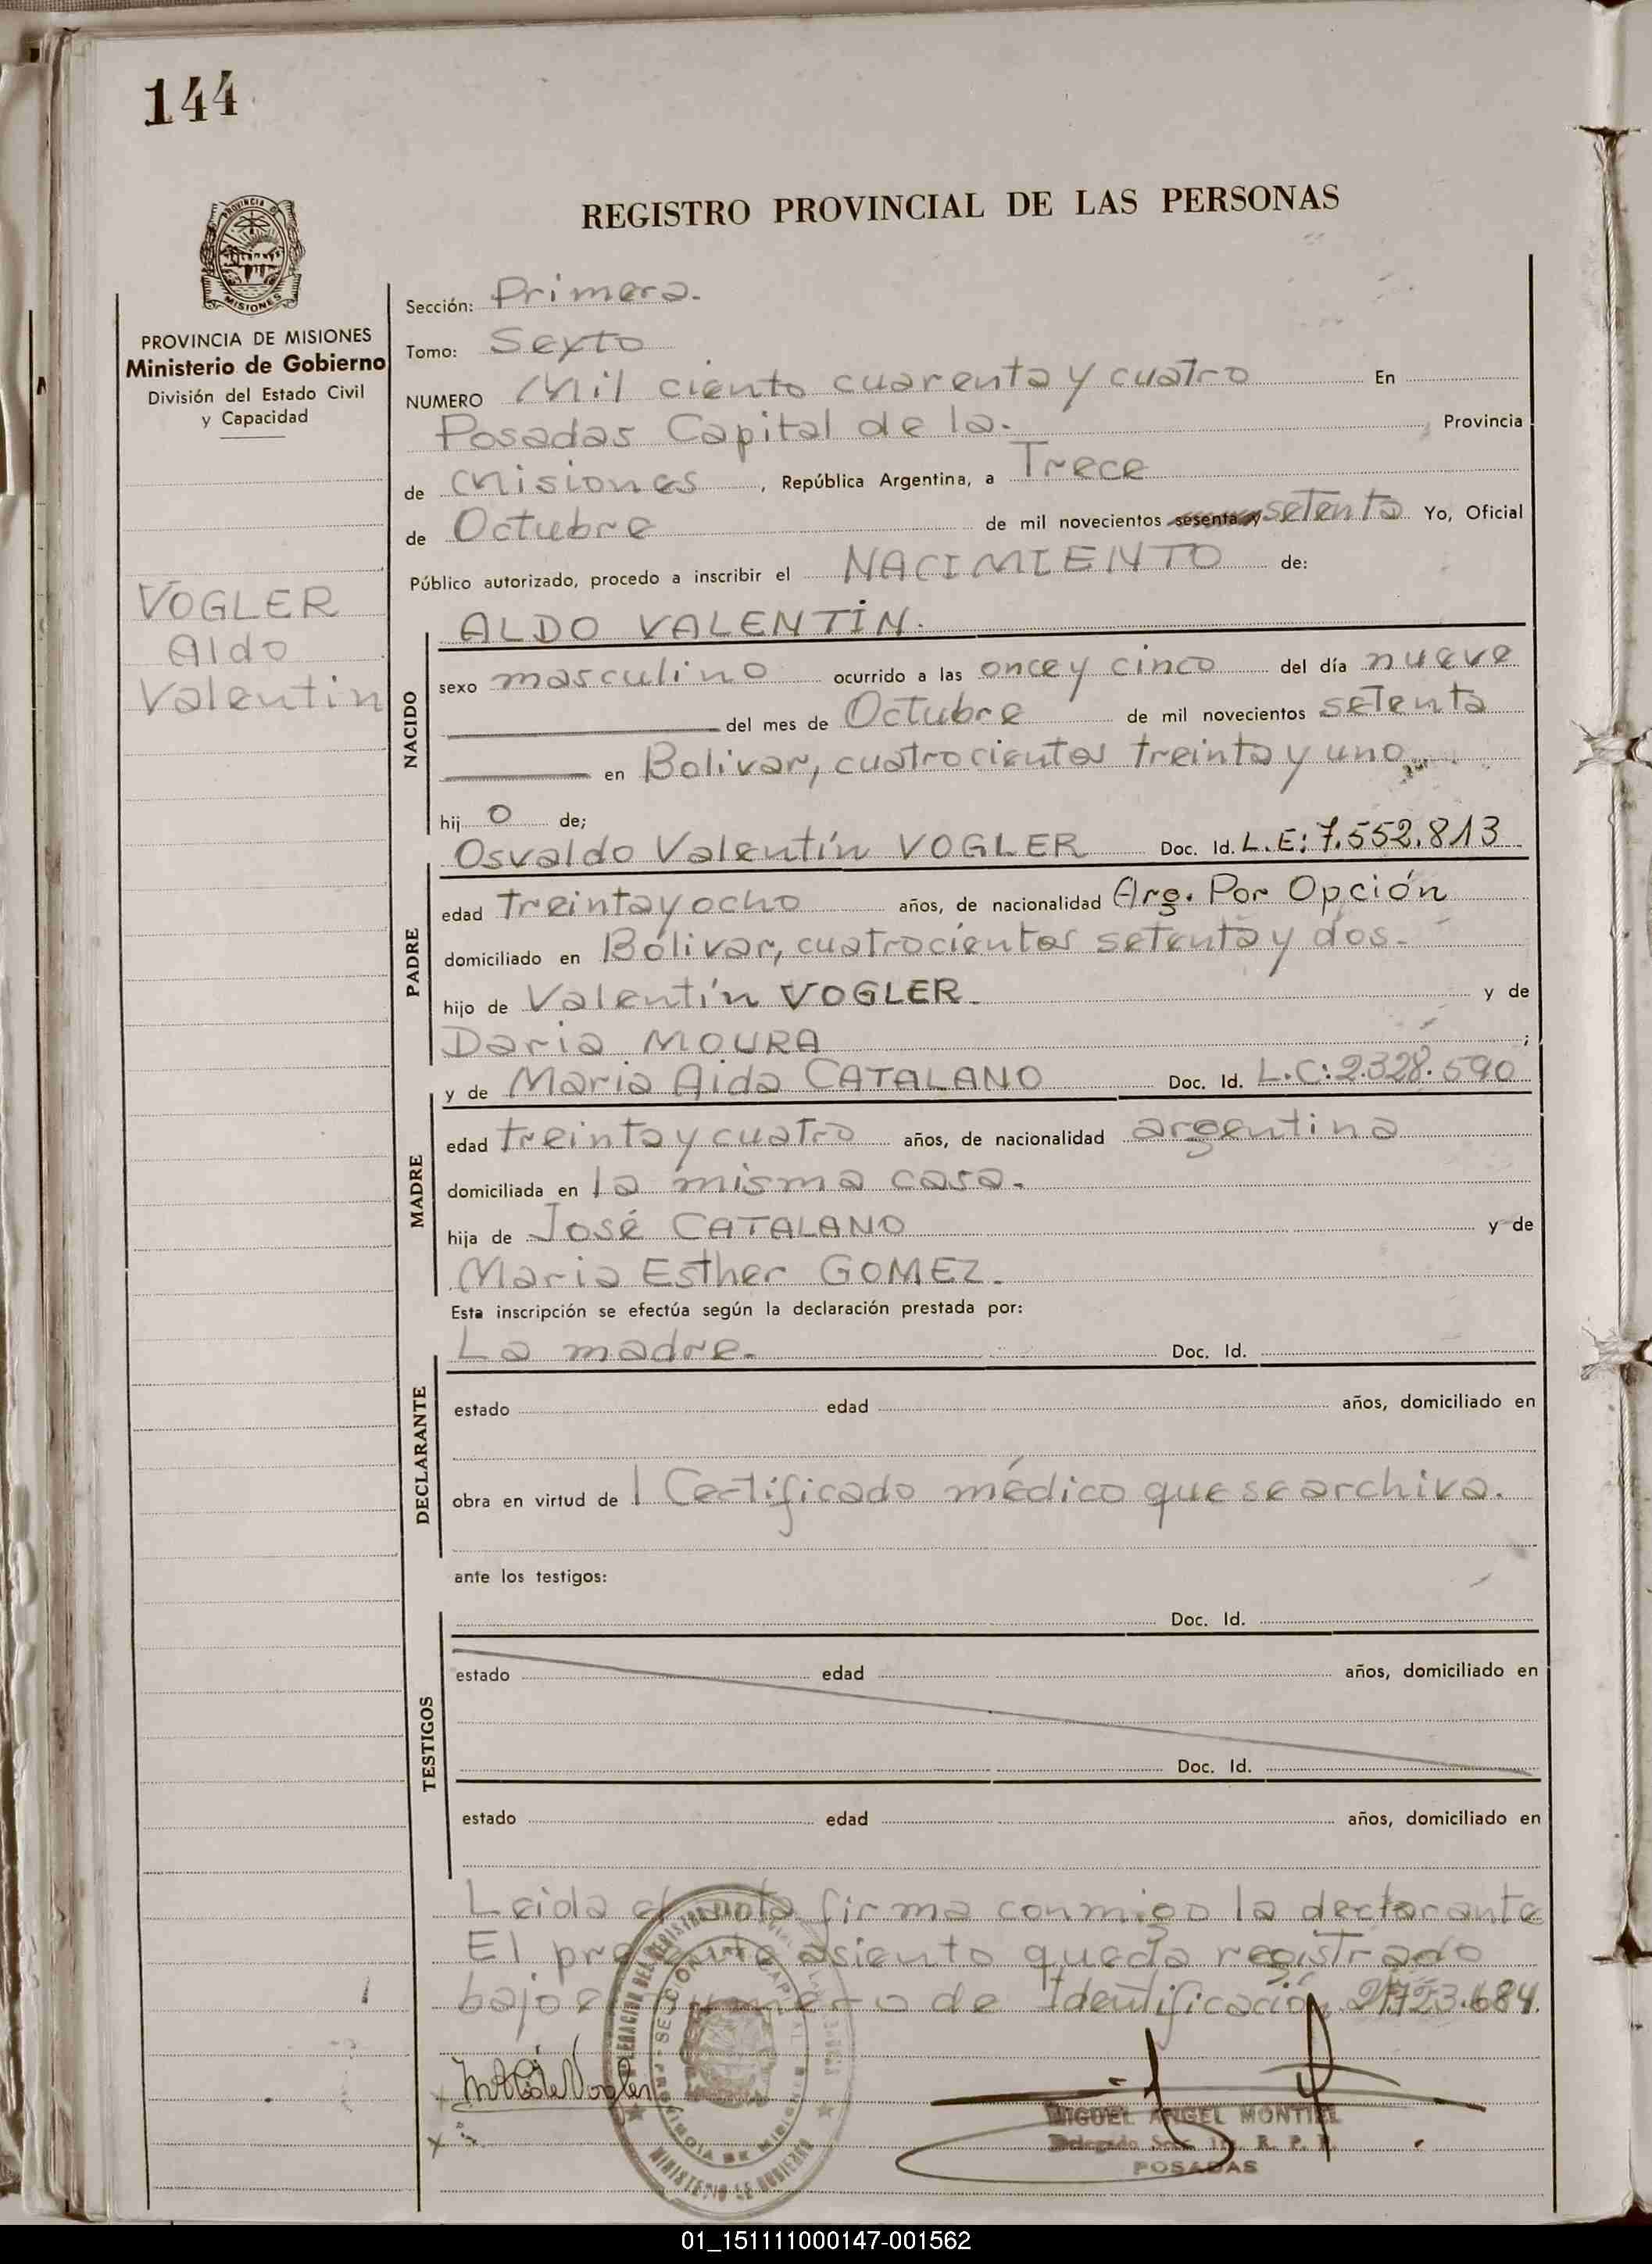 144
REGISTRO PROVINCIAL DE LAS PERSONAS
PROVINCIA
MISIONES
PROVINCIA DE MISIONES
Ministerio de Gobierno
División del Estado Civil
y Capacidad
VOGLER
Aldo
Valentin
Sección: Primera.
Tomo: Sexto
NUMERO Mil ciento cuarenta y cuatro En
Posadas Capital de la. Provincia
de Misiones, República Argentina, a Trece
de Octubre de mil novecientos sesenta y setenta Yo, Oficial
Público autorizado, procedo a inscribir el NACIMIENTO de:
NACIDO
ALDO VALENTÍN.
sexo masculino ocurrido a las once y cinco del día nueve
del mes de Octubre de mil novecientos setenta
en Bolivar, cuatrocientos treinta y uno
hij o de;
PADRE
Osvaldo Valentín VOGLER Doc. Id. L.E: 7.552.813
edad treinta y ocho años, de nacionalidad Arg. Por Opción
domiciliado en Bólivar, cuatrocientos setenta y dos.
hijo de Valentín VOGLER. y de
Daria MOURA ;
MADRE
y de Maria Aida CATALANO Doc. Id. L.C: 2.328.590
edad treinta y cuatro años, de nacionalidad argentina
domiciliada en la misma casa.
hija de José CATALANO y de
Maria Esther GOMEZ.
Esta inscripción se efectúa según la declaración prestada por:
DECLARANTE
La madre. Doc. Id.
estado edad años, domiciliado en
obra en virtud de 1 Certificado médico que se archiva.
ante los testigos:
TESTIGOS
Doc. Id.
estado edad años, domiciliado en
Doc. Id.
estado edad años, domiciliado en
Leida el acta firma conmigo la declarante
El presente asiento queda registrado
bajo el numero de Identificación 21.723.684.
MINISTERIO DE GOBIERNO
PROVINCIA DE MISIONES
MIGUEL ANGEL MONTIEL
Delegado Secc. 1ra. R. P. P.
POSADAS
01_151111000147-001562